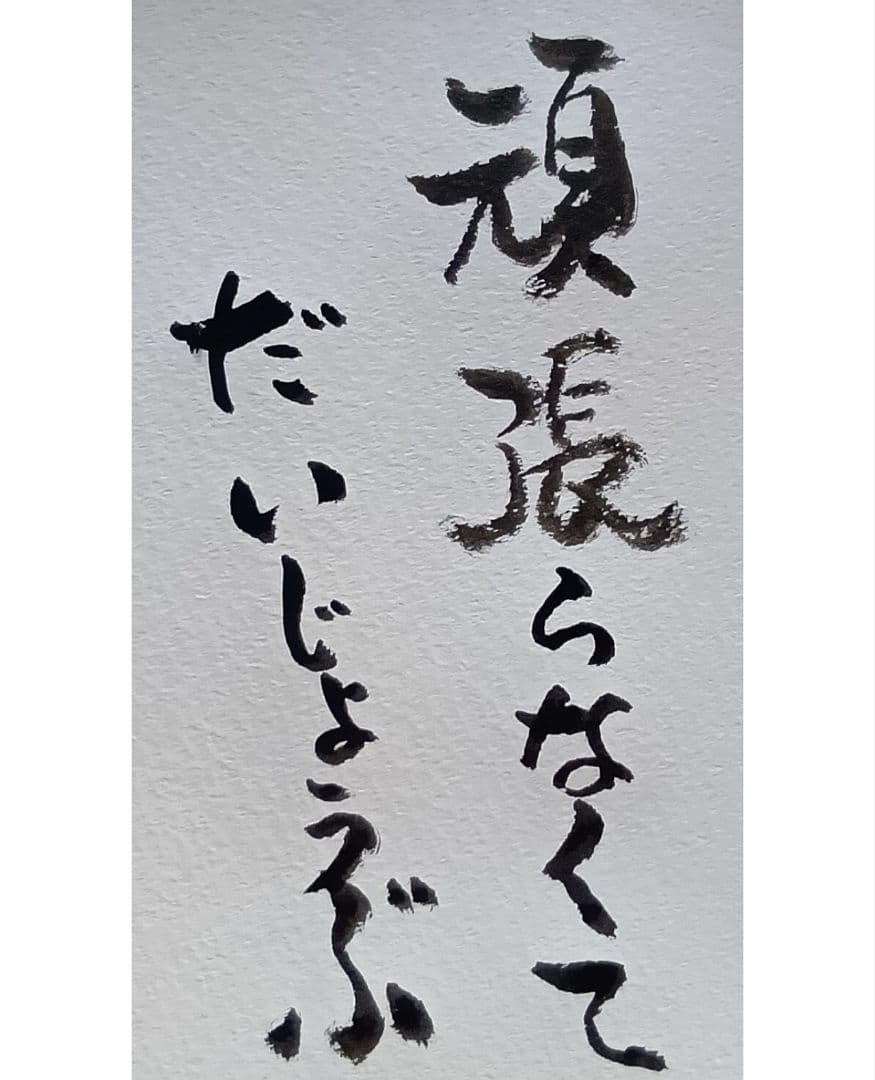 頑張らなくて
だいじょうぶ